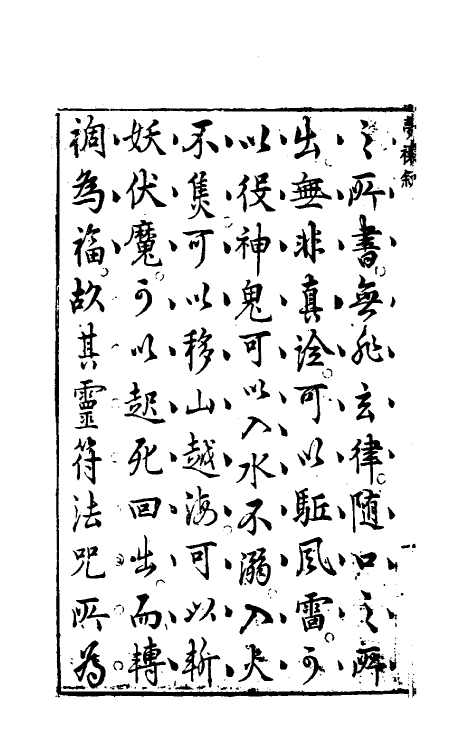 之所書無非玄律随口之所
出無非真詮可以駈風雷可
以役神鬼可以入水不溺入火
不𤋱可以移山越海可以斬
妖伏魔可以起死回出而轉
禍為福故其靈符法咒所為